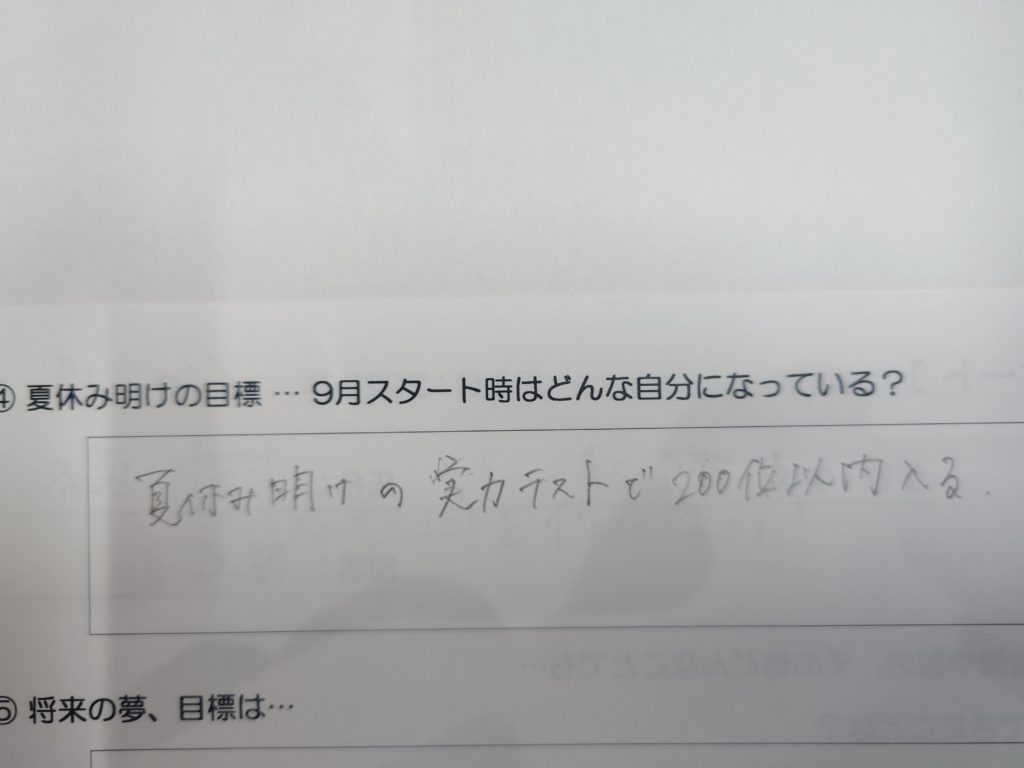 ④ 夏休み明けの目標 … 9月スタート時はどんな自分になっている？
夏休み明けの実力テストで200位以内入る.
⑤ 将来の夢、目標は…